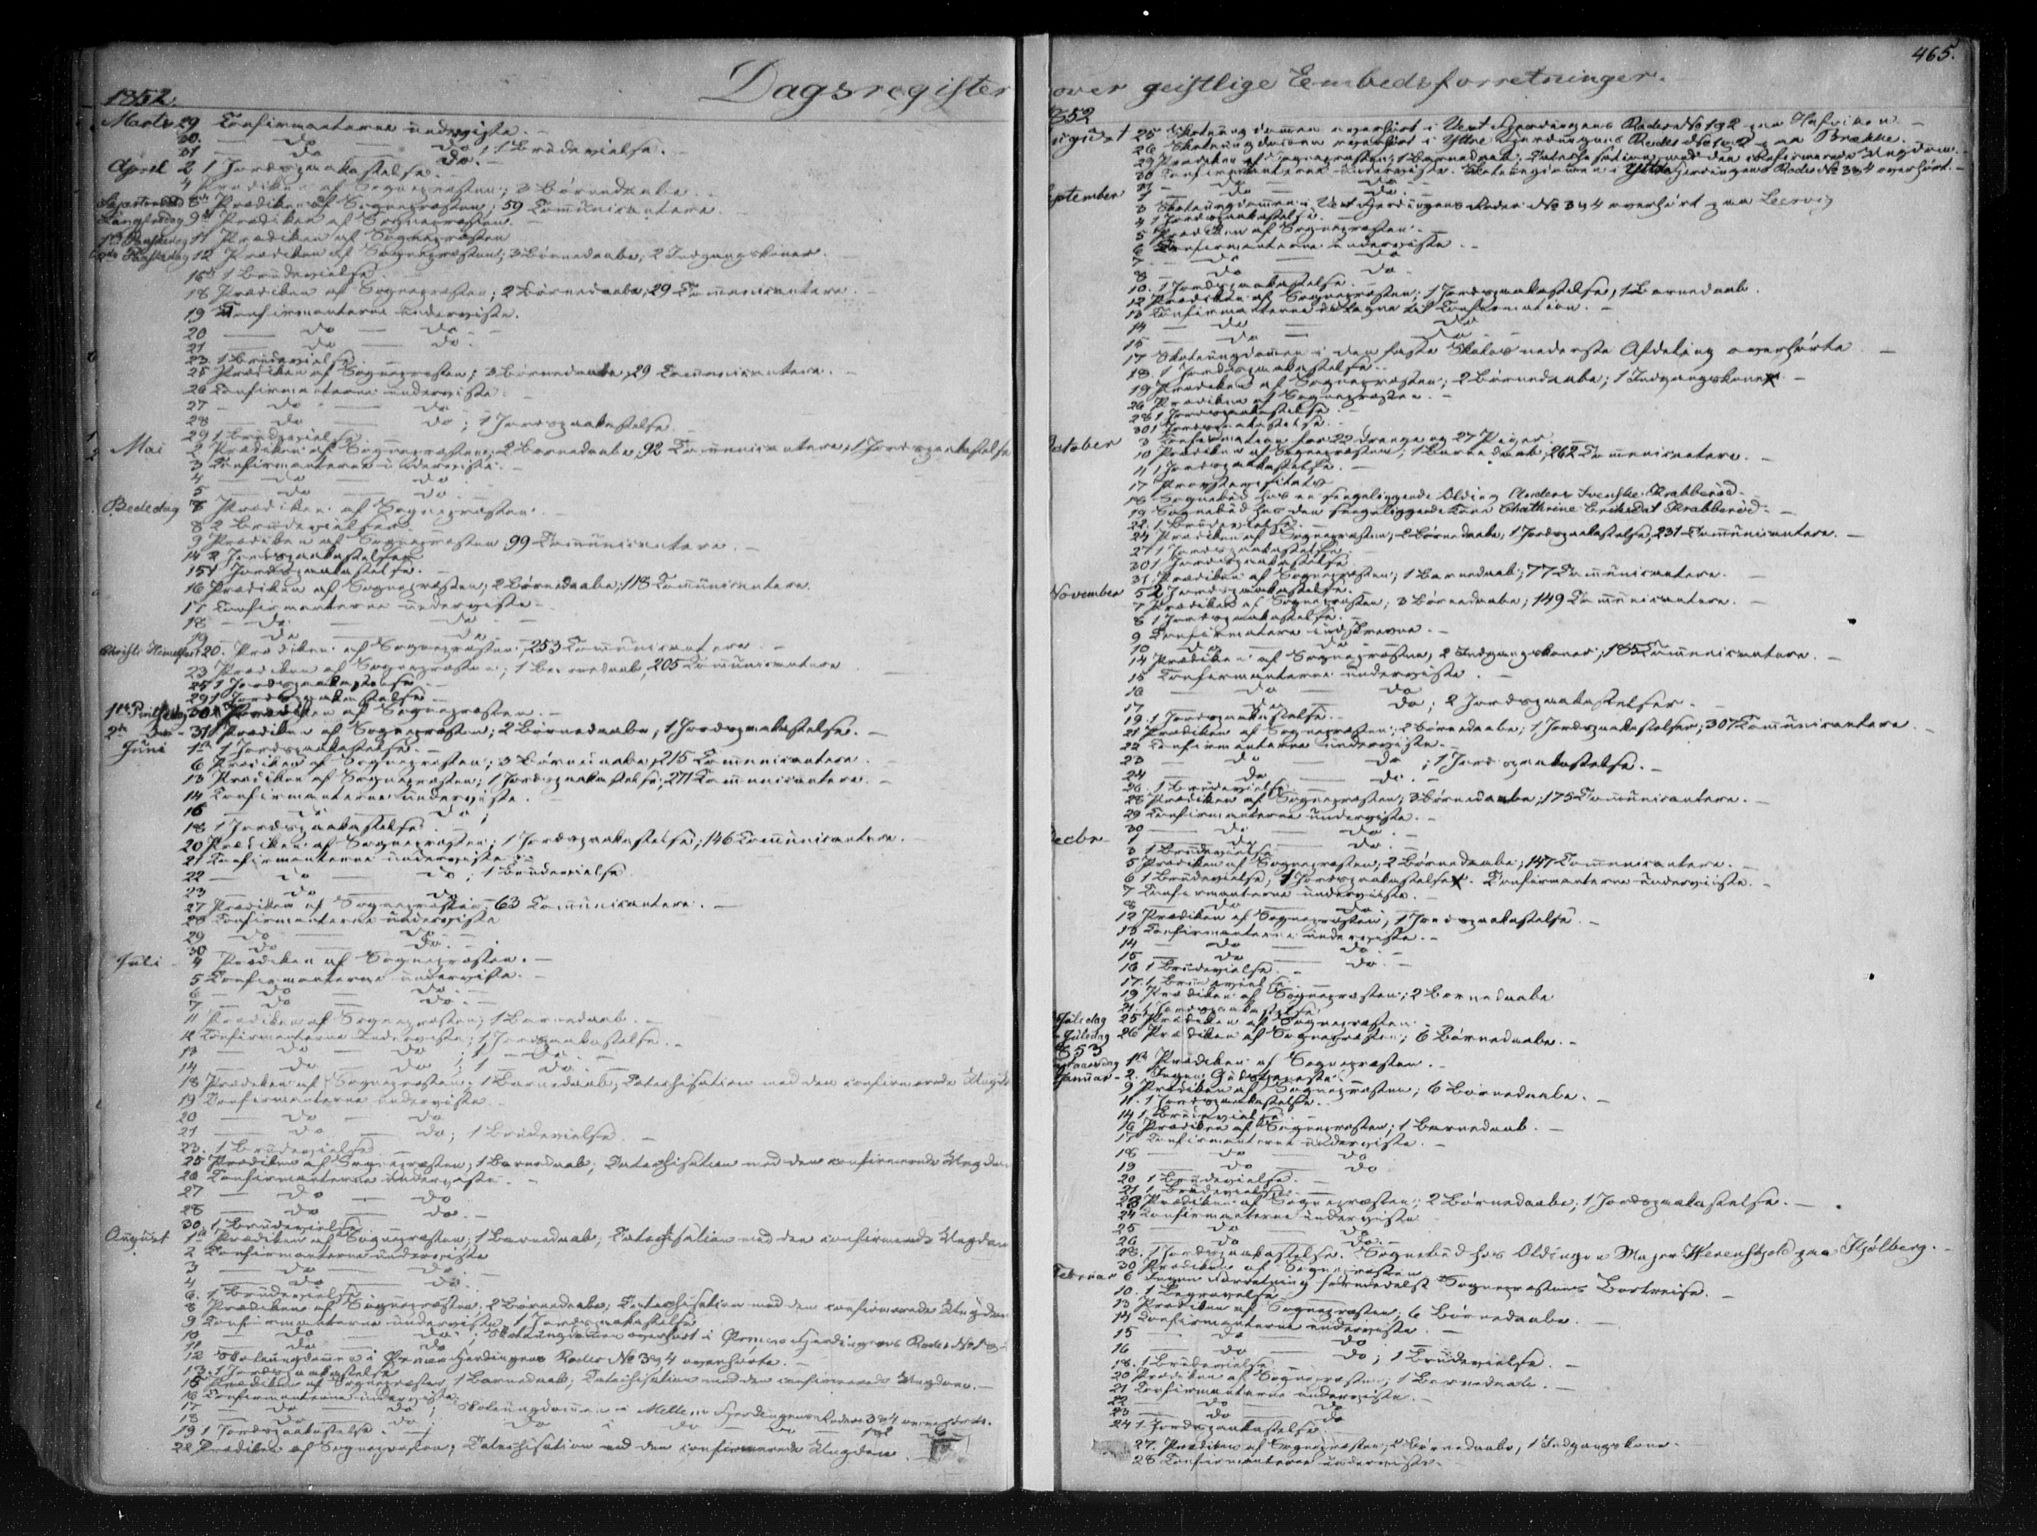 1852.
Dagsregister
Marts 29 Confirmanterne underviste. —
30. — do — do
31 — do — do; 1 Brudevielse. —
April 2 1 Jordspaakastelse. —
4 Prædiken af Sognepræsten; 3 Børnedaabe. —
8de Prædiken af Sognepræsten; 59 Communicantere.
Langfredag 9de Prædiken af Sognepræsten. —
11 Prædiken af Sognepræsten
12 Prædiken af Sognepræsten; 3 Børnedaabe; 2 Indgangskoner.
16de 1 Brudevielse. —
18 Prædiken af Sognepræsten; 2 Børnedaabe; 29 Communicantere. —
19 Confirmanterne underviste.
20 — do — do. —
21 — do — do. —
23 1 Brudevielse. —
25 Prædiken af Sognepræsten; 3 Børnedaabe, 29 Communicantere. —
26 Confirmanterne underviste.
27 — do — do
28 — do — do; 1 Jordspaakastelse.
29 1 Brudevielse. —
Mai 2 Prædiken af Sognepræsten; 2 Børnedaabe, 92 Communicantere, 1 Jordspaakastelse
3 Confirmanterne underviste. —
4 — do — do. —
5 — do — do. —
Bededag 7 Prædiken af Sognepræsten. —
8 2 Brudevielser. —
9 Prædiken af Sognepræsten, 99 Communicantere. —
14 2 Jordspaakastelser.
15 1 Jordspaakastelse. —
16 Prædiken af Sognepræsten; 2 Børnedaabe; 118 Communicantere.
17 Confirmanterne underviste. —
18 — do — do. —
19 — do — do. —
Christi Himmelfart 20. Prædiken af Sognepræsten, 253 Communicantere. —
23 Prædiken af Sognepræsten; 1 Barnedaab, 205 Communicantere
25 1 Jordspaakastelse
29 1 Jordspaakastelse. —
1ste Pintsedag 30 Prædiken af Sognepræsten. —
2den do — 31 Prædiken af Sognepræsten; 2 Børnedaabe, 1 Jordspaakastelse. —
Juni 1ste 1 Jordspaakastelse. —
6 Prædiken af Sognepræsten; 3 Børnedaabe, 215 Communicantere. —
13 Prædiken af Sognepræsten; 1 Jordspaakastelse; 271 Communicantere. —
14 Confirmanterne underviste. —
16 — do — do;
18 1 Jordspaakastelse. —
20 Prædiken af Sognepræsten; 1 Jordspaakastelse; 146 Communicantere.
21 Confirmanterne underviste. —
22 — do — do; 1 Brudevielse.
23 — do — do
27 Prædiken af Sognepræsten, — 63 Communicantere. —
28 Confirmanterne underviste
29 — do — do. —
30 — do — do. —
Juli 4 Prædiken af Sognepræsten. —
5 Confirmanterne underviste. —
6 — do — do. —
7 — do — do. —
11 Prædiken af Sognepræsten; 1 Barnedaab. —
12 Confirmanterne underviste; 1 Jordspaakastelse. —
13 — do — do; 1 — do. —
14 — do — do; 1 — do. —
18 Prædiken af Sognepræsten; 1 Barnedaab; Catechisation med den confirmerede Ungdom
19 Confirmanterne underviste.
20 — do — do
21 — do — do; 1 Brudevielse. —
23. 1 Brudevielse. —
25 Prædiken af Sognepræsten; 1 Barnedaab; Catechisation med den confirmerede Ungdom
26 Confirmanterne underviste. —
27 — do — do
28 — do — do. —
30. 1 Brudevielse. —
August 1ste Prædiken af Sognepræsten; 1 Barnedaab; Catechisation med den confirmerede Ungdom
2 Confirmanterne underviste
3 — do — do. —
4 — do — do.
6. 1 Brudevielse. —
8 Prædiken af Sognepræsten. 2 Børnedaabe; Catechisation med den confirmerede Ungdom
9 Confirmanterne underviste, 1 Jordspaakastelse
10 — do — do. Skoleungdommen overhørt i
11 — do — do
12 Skoleungdommen i Fjerdingens Roder No 3 & 4 overhørte. —
13. 1 Jordspaakastelse
15 Prædiken af Sognepræsten, 1 Barnedaab; Catechisation med den confirmerede Ungdom. —
16 Confirmanterne underviste.
17 — do — do; Skoleungdommen i Mellem Fjerdingens Roder 3 & 4 overhørte.
18 — do — do;
19 1 Jordspaakastelse.
22 Prædiken af Sognepræsten; Catechisation med den confirmerede Ungdom.
465.
over geistlige Embedsforretninger.
1852
August 25 Skoleungdommen overhørt i Vest Fjerdingens Roder No 1 & 2 paa
26 Skoleungdommen overhørt i Yttre Fjerdingens Roder No 1 & 2 paa Brække.
29 Prædiken af Sognepræsten; 1 Barnedaab; Catechisation med den confirmerede Ungdom. —
30 Confirmanterne underviste. Skoleungdommen i Yttre Fjerdingens Roder No 3 & 4 overhørt. —
31 — do — do. —
September 1 — do — do. —
3 Skoleungdommen i Vest Fjerdingens Roder No 3 & 4 overhørt paa Leervig
4 1 Jordspaakastelse. —
5 Prædiken af Sognepræsten. —
6 Confirmanterne underviste. —
7 — do — do.
8 — do — do.
10. 1 Jordspaakastelse. —
12 Prædiken af Sognepræsten; 1 Jordspaakastelse, 1 Barnedaab.
13 Confirmanterne antagne til Confirmation. —
14 — do — do
15 — do — do. —
17 Skoleungdommen i den faste Skoles nederste Afdeling overhørte —
18. 1 Jordspaakastelse. —
19 Prædiken af Sognepræsten; 2 Børnedaabe; 1 Indgangskone. —
26 Prædiken af Sognepræsten. —
28 1 Jordspaakastelse. —
30 1 Jordspaakastelse. —
October 3 Confirmation for 22 Drenge og 27 Piger.
10 Prædiken af Sognepræsten; 1 Barnedaab, 262 Communicantere. —
11 1 Jordspaakastelse. —
17 Provstevisitats
18 Sognebud hos en sengeliggende Olding Anders Svenske Krabberød. —
19 Sognebud hos den sengeliggende Kone Chathrine Krabberød. —
22. 1 Brudevielse. —
24 Prædiken af Sognepræsten; 2 Børnedaabe; 1 Jordspaakastelse, 231 Communicantere. —
27 1 Jordspaakastelse. —
30 1 Jordspaakastelse
31. Prædiken af Sognepræsten; 1 Barnedaab; 77 Communicantere. —
November 5 2 Jordspaakastelse.
7 Prædiken af Sognepræsten; 3 Børnedaabe; 149 Communicantere. —
8 1 Jordspaakastelse. —
9 Confirmantere indskrevne. —
10 — do — do. —
14 Prædiken af Sognepræsten; 2 Indgangskoner; 185 Communicantere. —
15 Confirmanterne underviste. —
16 — do — do
17 — do — do; 2 Jordspaakastelser. —
19. 1 Jordspaakastelse. —
21 Prædiken af Sognepræsten; 2 Børnedaabe; 1 Jordspaakastelse; 307 Communicantere. —
22 Confirmanterne underviste. —
23 — do — do; 1 Jordspaakastelse. —
24 — do — do. —
26. 1 Brudevielse. —
28 Prædiken af Sognepræsten; 3 Børnedaabe; 175 Communicantere. —
29 Confirmanterne underviste. —
30 — do — do. —
Decbr 1 — do — do. —
3 1 Brudevielse. —
5 Prædiken af Sognepræsten; 2 Børnedaabe; 147 Communicantere. —
6 1 Brudevielse; 1 Jordspaakastelse. Confirmanterne underviiste. —
7 Confirmanterne underviste.
8 — do — do
12 Prædiken af Sognepræsten; 1 Jordspaakastelse. —
13 Confirmanterne underviste. —
14 — do — do
15 — do — do. —
16 1 Brudevielse. —
17. 1 Brudevielse. —
19 Prædiken af Sognepræsten; 2 Børnedaabe
21. 1 Jordspaakastelse.
Juledag 25 Prædiken af Sognepræsten.
Juledag 26 Prædiken af Sognepræsten; 6 Børnedaabe. —
1853
Nytaarsdag 1ste Prædiken af Sognepræsten. —
Januar — 2. Ingen Gudstjeneste. —
9 Prædiken af Sognepræsten; 6 Børnedaabe. —
11. 1 Jordspaakastelse.
14 1 Brudevielse. —
16 Prædiken af Sognepræsten; 1 Barnedaab. —
17 Confirmanterne underviste. —
18 — do — do
19 — do — do
20 1 Brudevielse. —
21 1 Brudevielse. —
23 Prædiken af Sognepræsten; 2 Børnedaabe; 1 Jordspaakastelse. —
24 Confirmanterne underviste
25 — do — do
26 — do — do. —
28. 1 Jordspaakastelse. Sognebud hos Oldingen Major Werenskjold paa Kjølberg. —
30 Prædiken af Sognepræsten
Februar 6 Ingen Forretning formedelst Sognepræstens Bortreise. —
10. 1 Begravelse
13 Prædiken af Sognepræsten, 6 Børnedaabe. —
14 Confirmanterne underviste. —
15 — do — do
16 — do — do; 1 Brudevielse. —
18. 1 Brudevielse.
20 Prædiken af Sognepræsten; 1 Barnedaab. —
21 Confirmanterne underviste. —
22 — do — do
23 — do — do
24 1. Jordspaakastelse.
27. Prædiken af Sognepræsten; 2 Børnedaabe, 1 Indgangskone. —
28 Confirmanterne underviste. —